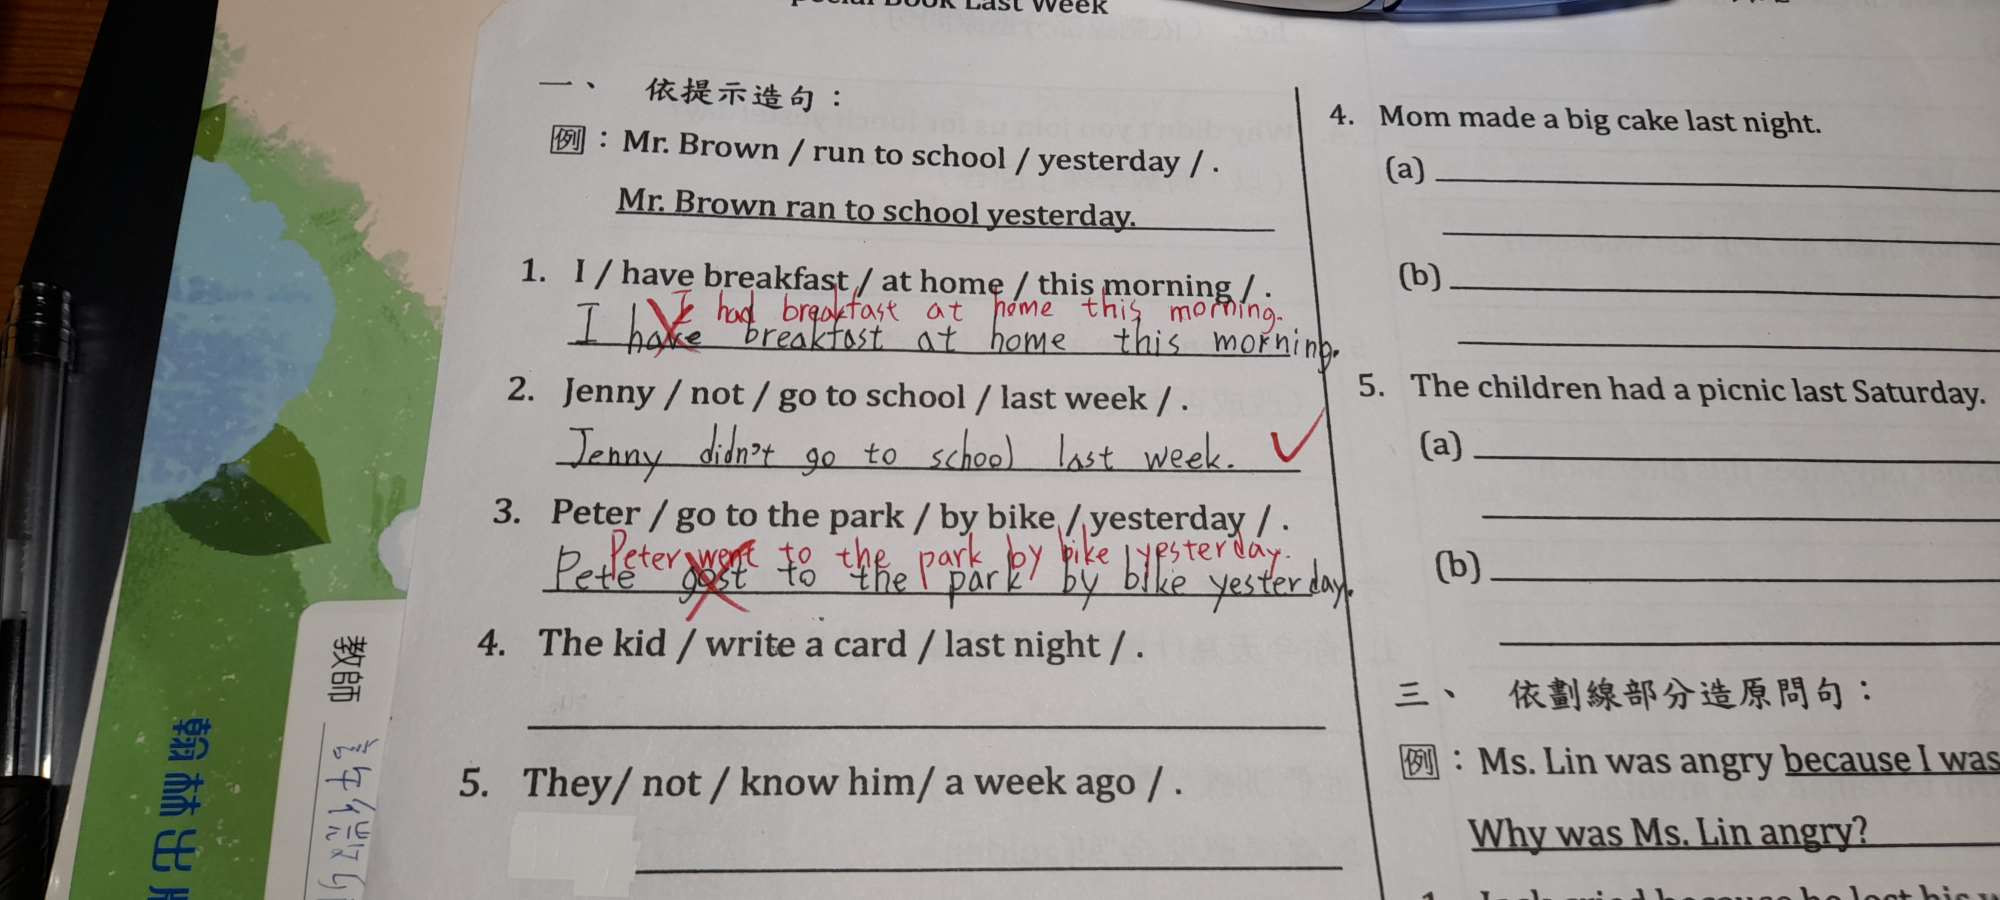 Book Last Week
一、 依提示造句：
例：Mr. Brown / run to school / yesterday / .
Mr. Brown ran to school yesterday.
1. I / have breakfast / at home / this morning / .
I had breakfast at home this morning.
I have breakfast at home this morning.
2. Jenny / not / go to school / last week / .
Jenny didn't go to school last week.
3. Peter / go to the park / by bike / yesterday / .
Peter went to the park by bike yesterday.
Pete gost to the park by bike yesterday.
4. The kid / write a card / last night / .
5. They/ not / know him/ a week ago / .
4. Mom made a big cake last night.
(a)
(b)
5. The children had a picnic last Saturday.
(a)
(b)
三、 依劃線部分造原問句：
例：Ms. Lin was angry because I was
Why was Ms. Lin angry?
教師
翰林出